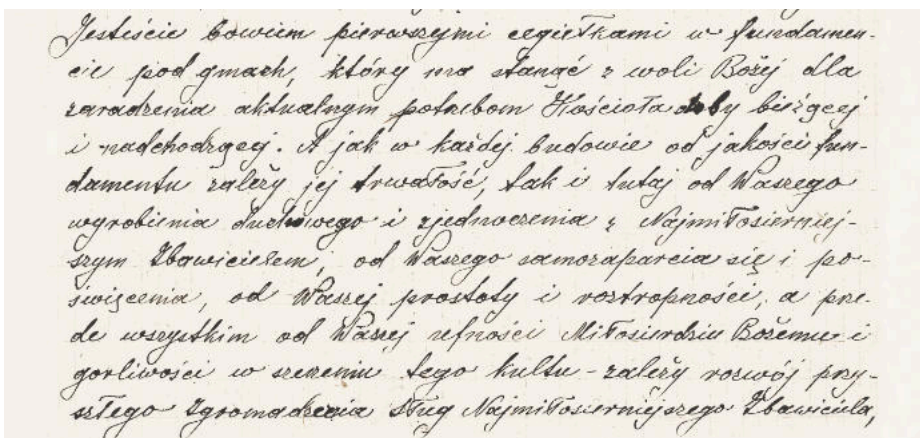 Jesteście bowiem pierwszymi cegiełkami w fundamen-
cie pod gmach, który ma stanąć z woli Bożej dla
zaradzenia aktualnym potrzebom Kościoła doby bieżącej
i nadchodzącej. A jak w każdej budowie od jakości fun-
damentu zależy jej trwałość, tak i tutaj od Waszego
wyrobienia duchowego i zjednoczenia z Najmiłosierniej-
szym Zbawicielem, od Waszego samozaparcia się i po-
święcenia, od Waszej prostoty i roztropności, a prze-
de wszystkim od Waszej ufności Miłosierdziu Bożemu i
gorliwości w szerzeniu tego kultu - zależy rozwój przy-
szłego Zgromadzenia Sług Najmiłosierniejszego Zbawiciela,